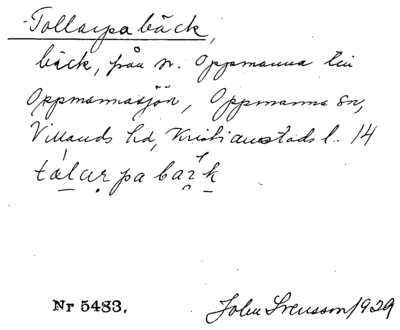 Tollarpabäck,
bäck, från n. Oppmanna till
Oppmannasjön, Oppmanna sn,
Villands hd, Kristianstads l. 14
tålarpabäk
Nr 5483. John Svensson 1929